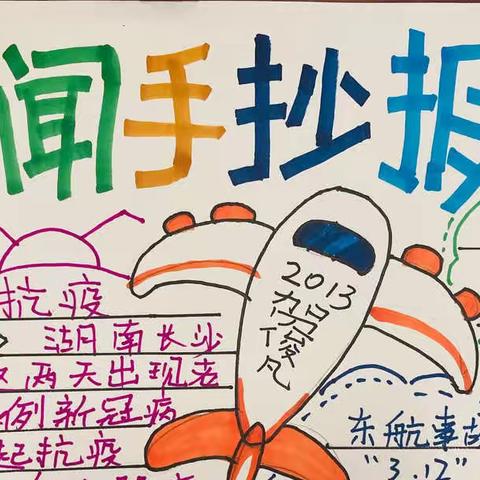 闻手抄报
2013
俊凡
抗疫
湖南长沙
两天出现者
例新冠病
起抗疫
东航事故
"3.12"